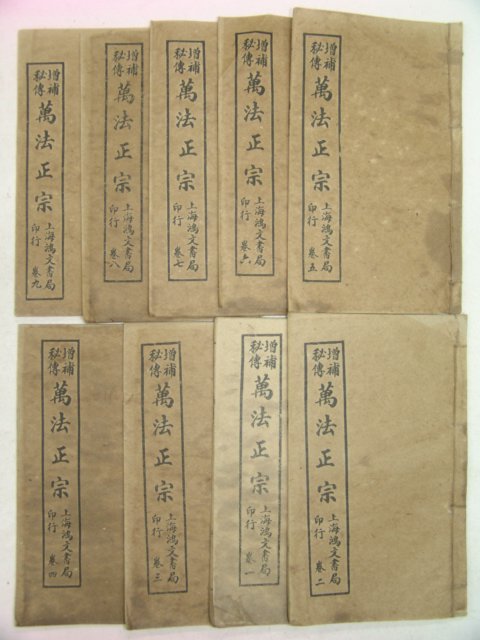 增補
秘傳
萬法正宗
上海鴻文書局
印行 卷五
增補
秘傳
萬法正宗
上海鴻文書局
印行 卷六
增補
秘傳
萬法正宗
上海鴻文書局
印行 卷七
增補
秘傳
萬法正宗
上海鴻文書局
印行 卷八
增補
秘傳
萬法正宗
上海鴻文書局
印行 卷九
增補
秘傳
萬法正宗
上海鴻文書局
印行 卷二
增補
秘傳
萬法正宗
上海鴻文書局
印行 卷一
增補
秘傳
萬法正宗
上海鴻文書局
印行 卷三
增補
秘傳
萬法正宗
上海鴻文書局
印行 卷四